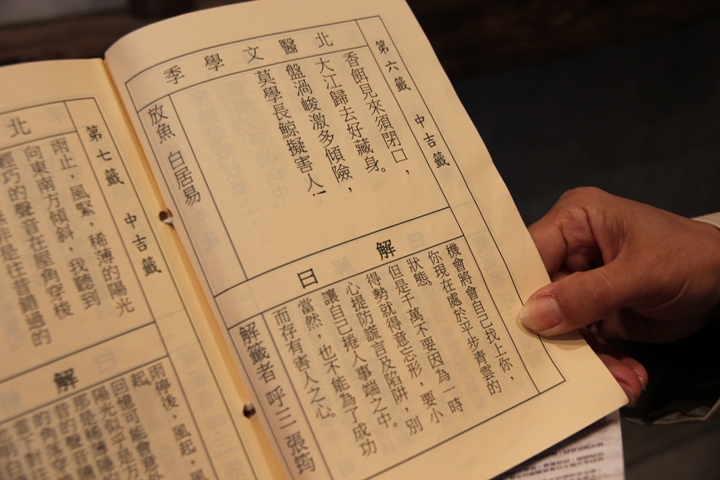 北醫文學季
第六籤 中吉籤
香餌見來須閉口，
大江歸去好藏身。
盤渦峻激多傾險，
莫學長鯨擬害人！
放魚 白居易
解曰
機會將會自己找上你，
你現在處於平步青雲的
狀態。
但是千萬不要因為一時
得勢就得意忘形，要小
心提防謊言及陷阱，別
讓自己捲入事端之中。
當然，也不能為了成功
而存有害人之心。
解籤者 呼三 張筠
北
第七籤 中吉籤
雨止，風緊，稀薄的陽光
向東南方傾斜，我聽到
輕巧的聲音在屋角穿梭
非是往昔錯過的
解
雨停後，風起，
起。
回憶可能會意外